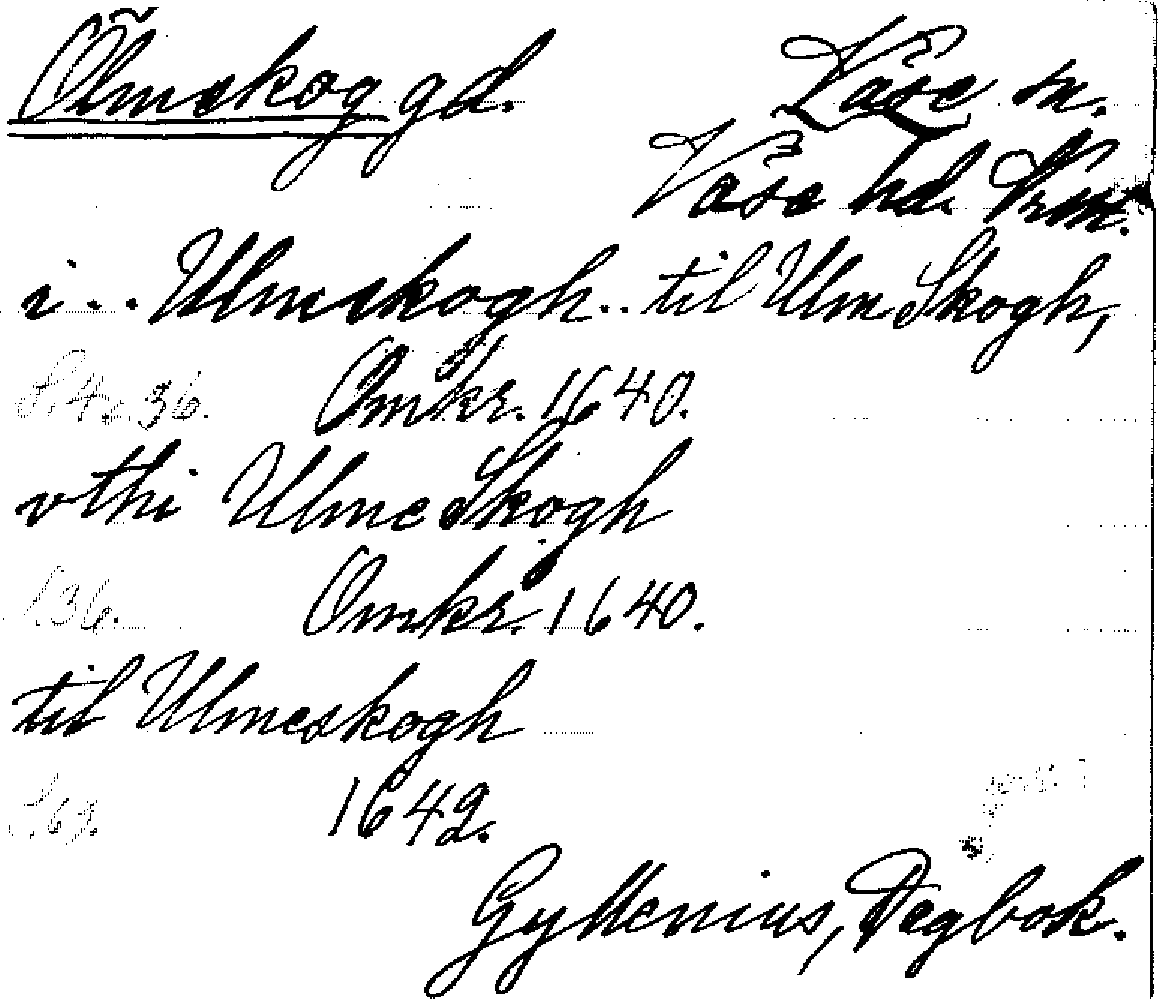 Ölmskog gd. Väse sn.
Väse hd. Vrml.
i.. Ulmskogh.. til Ulm Skogh,
S. 4, 36. Omkr. 1640.
vthi Ulme Skogh
S. 36. Omkr. 1640.
til Ulmeskogh
S. 69. 1642.
Gyllenius, Dagbok.